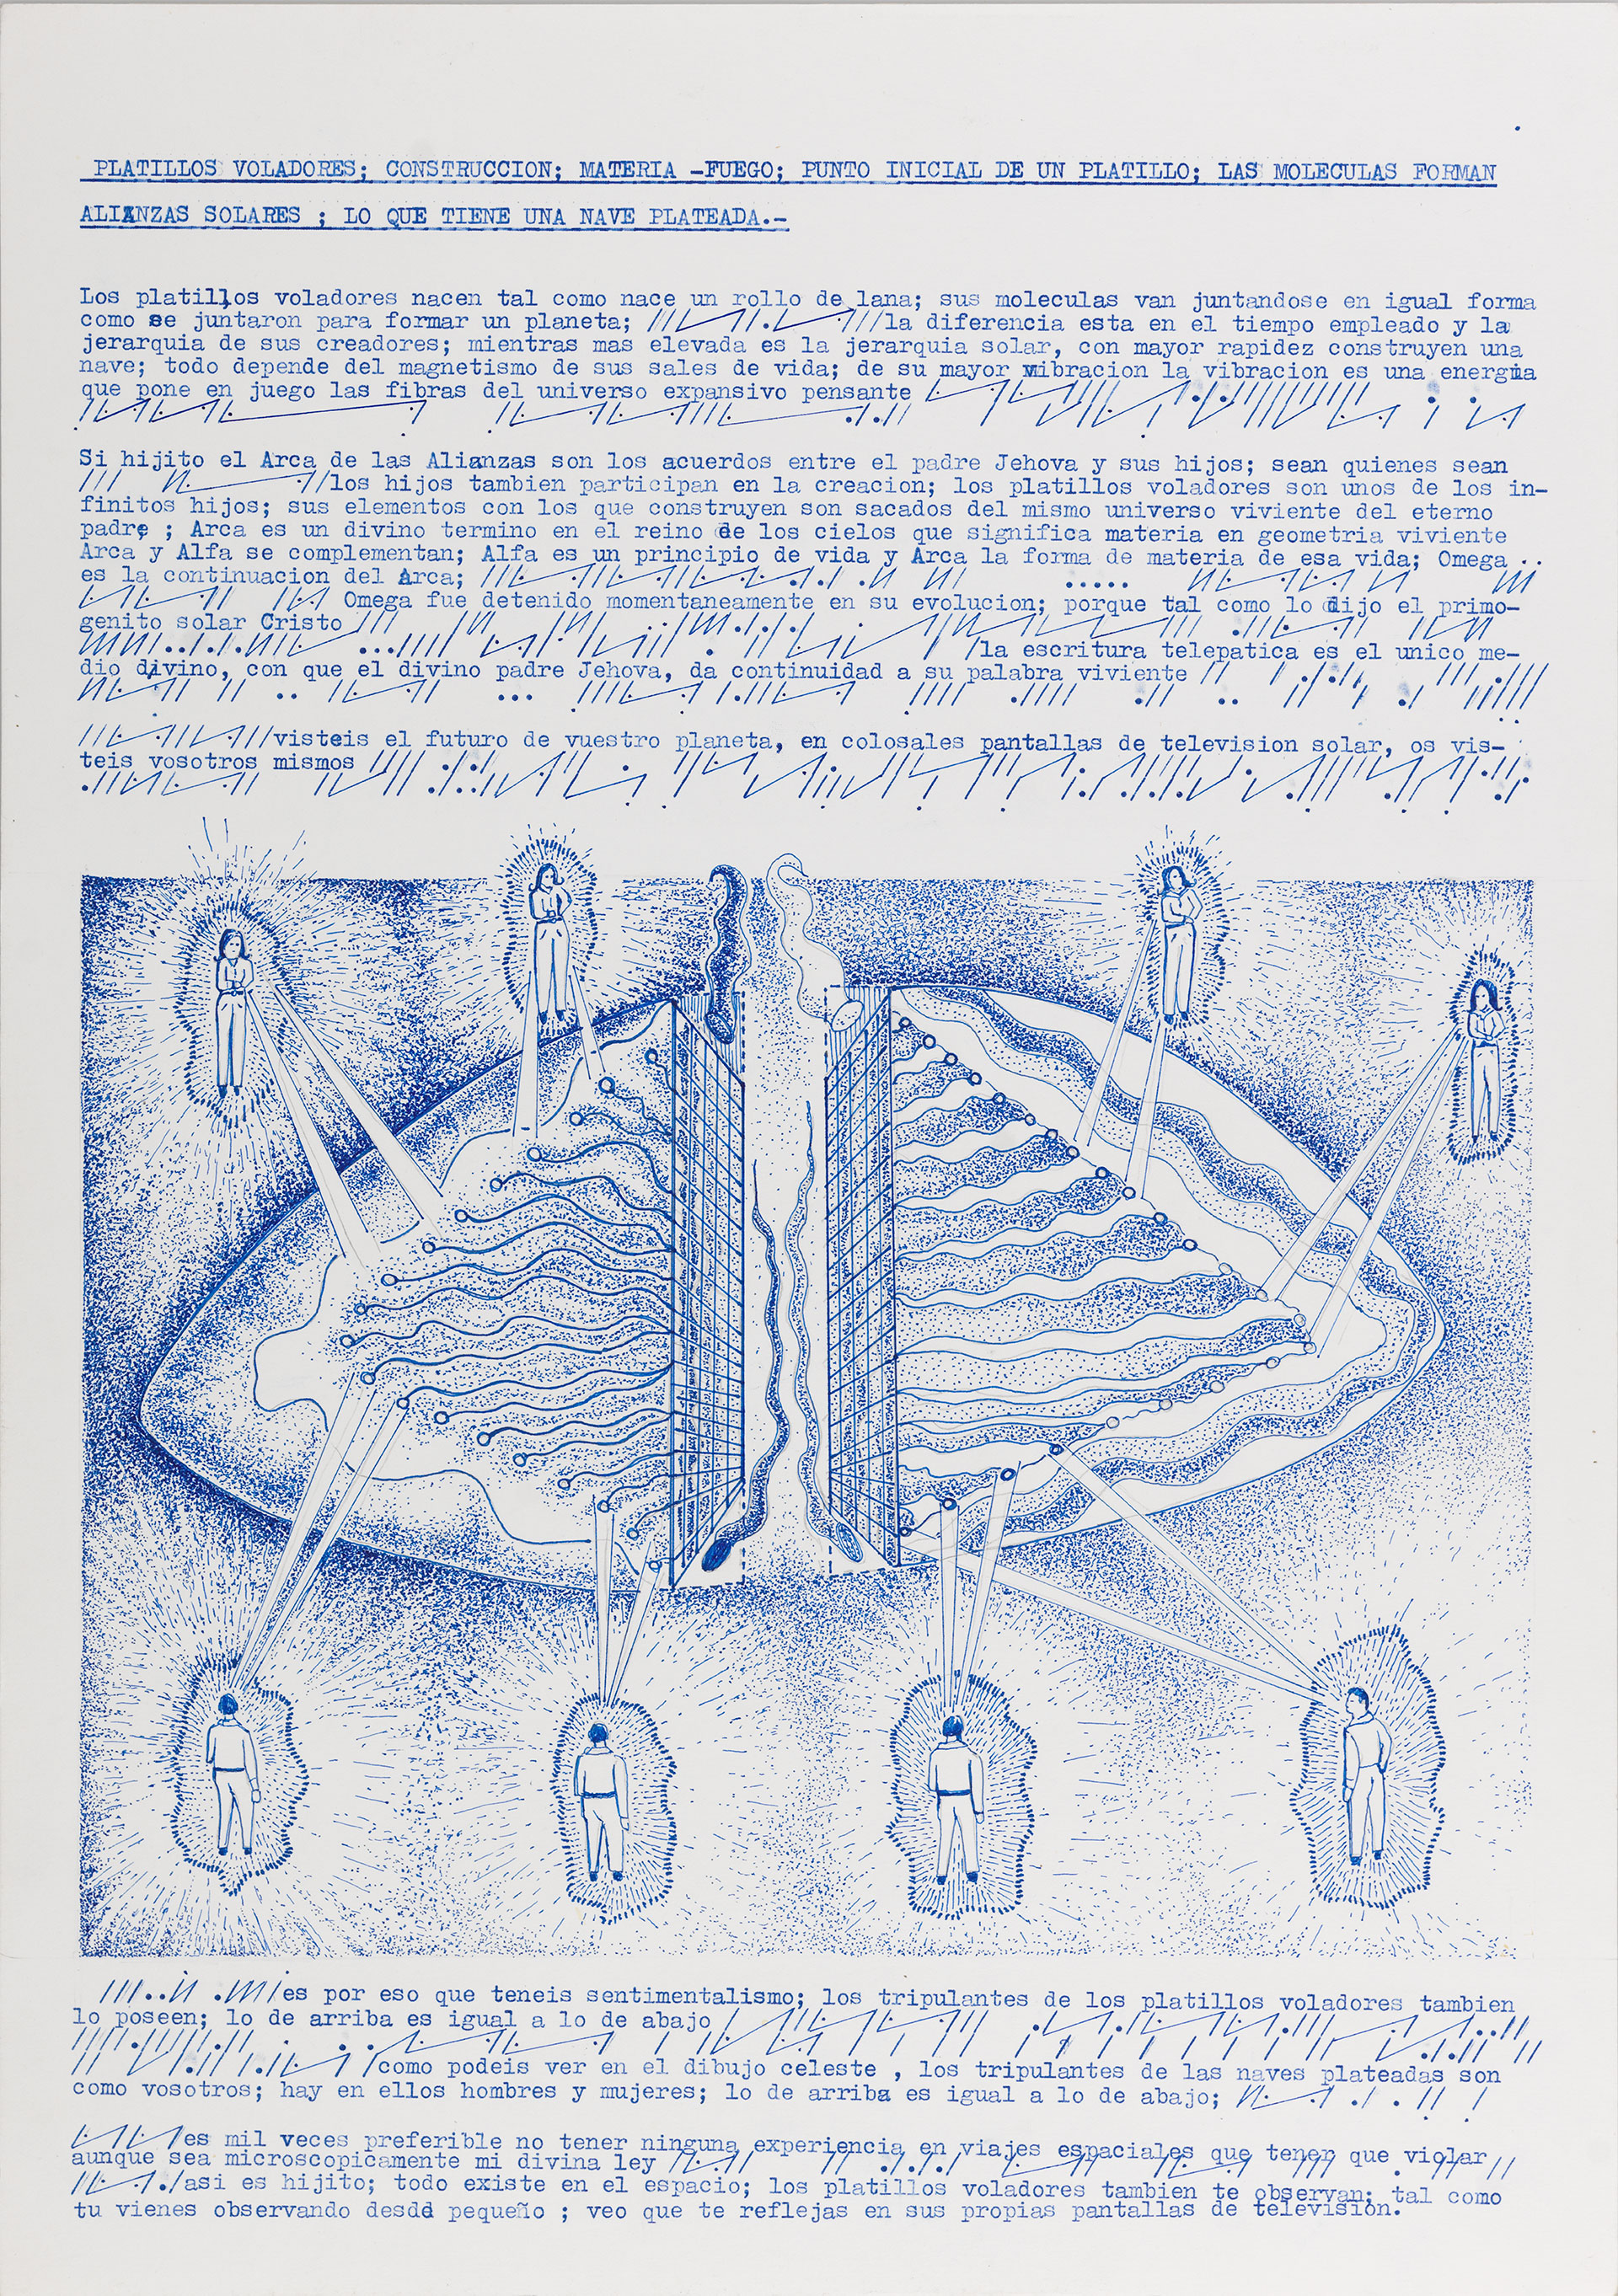 PLATILLOS VOLADORES; CONSTRUCCION; MATERIA -FUEGO; PUNTO INICIAL DE UN PLATILLO; LAS MOLECULAS FORMAN
ALIANZAS SOLARES ; LO QUE TIENE UNA NAVE PLATEADA.-
Los platillos voladores nacen tal como nace un rollo de lana; sus moleculas van juntandose en igual forma
como se juntaron para formar un planeta; la diferencia esta en el tiempo empleado y la
jerarquia de sus creadores; mientras mas elevada es la jerarquia solar, con mayor rapidez construyen una
nave; todo depende del magnetismo de sus sales de vida; de su mayor vibracion la vibracion es una energia
que pone en juego las fibras del universo expansivo pensante
Si hijito el Arca de las Alianzas son los acuerdos entre el padre Jehova y sus hijos; sean quienes sean
los hijos tambien participan en la creacion; los platillos voladores son unos de los in-
finitos hijos; sus elementos con los que construyen son sacados del mismo universo viviente del eterno
padre ; Arca es un divino termino en el reino de los cielos que significa materia en geometria viviente
Arca y Alfa se complementan; Alfa es un principio de vida y Arca la forma de materia de esa vida; Omega
es la continuacion del Arca;
Omega fue detenido momentaneamente en su evolucion; porque tal como lo dijo el primo-
genito solar Cristo
la escritura telepatica es el unico me-
dio divino, con que el divino padre Jehova, da continuidad a su palabra viviente
visteis el futuro de vuestro planeta, en colosales pantallas de television solar, os vis-
teis vosotros mismos
es por eso que teneis sentimentalismo; los tripulantes de los platillos voladores tambien
lo poseen; lo de arriba es igual a lo de abajo
como podeis ver en el dibujo celeste , los tripulantes de las naves plateadas son
como vosotros; hay en ellos hombres y mujeres; lo de arriba es igual a lo de abajo;
es mil veces preferible no tener ninguna experiencia en viajes espaciales que tener que violar
aunque sea microscopicamente mi divina ley
asi es hijito; todo existe en el espacio; los platillos voladores tambien te observan; tal como
tu vienes observando desdd pequeño ; veo que te reflejas en sus propias pantallas de television.